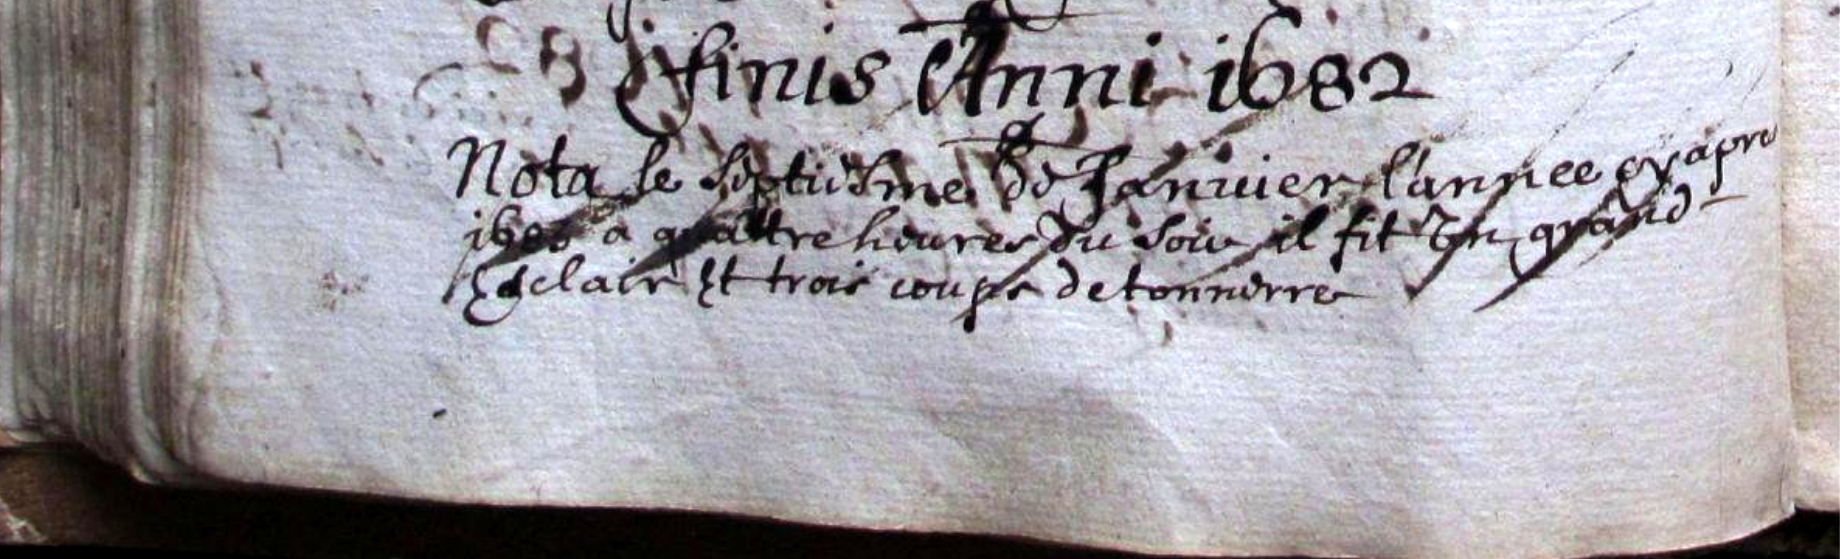 finis Anni 1682
Nota le septiesme de Januier l'annee cy apre
a quattre heures du soir il fit Un grand
Esclair Et trois coups de tonnerre